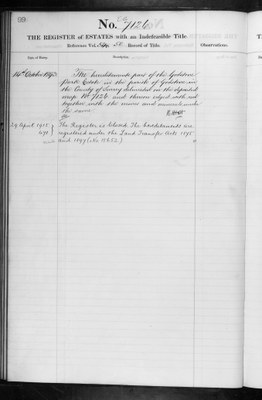 99
No. 7126
THE REGISTER of ESTATES with an Indefeasible Title.
Reference Vol. 50. Record of Title. Observations.
Date of Entry. Description.
The hereditaments part of the Godstone
Estate in the parish of Godstone in
the County of Surrey delineated on the deposited
map No. 7126 and thereon edged with red
together with the mines and minerals under
the same.
29 April 1915 The Register is Closed. The hereditaments are
registered under the Land Transfer Acts 1875
and 1897